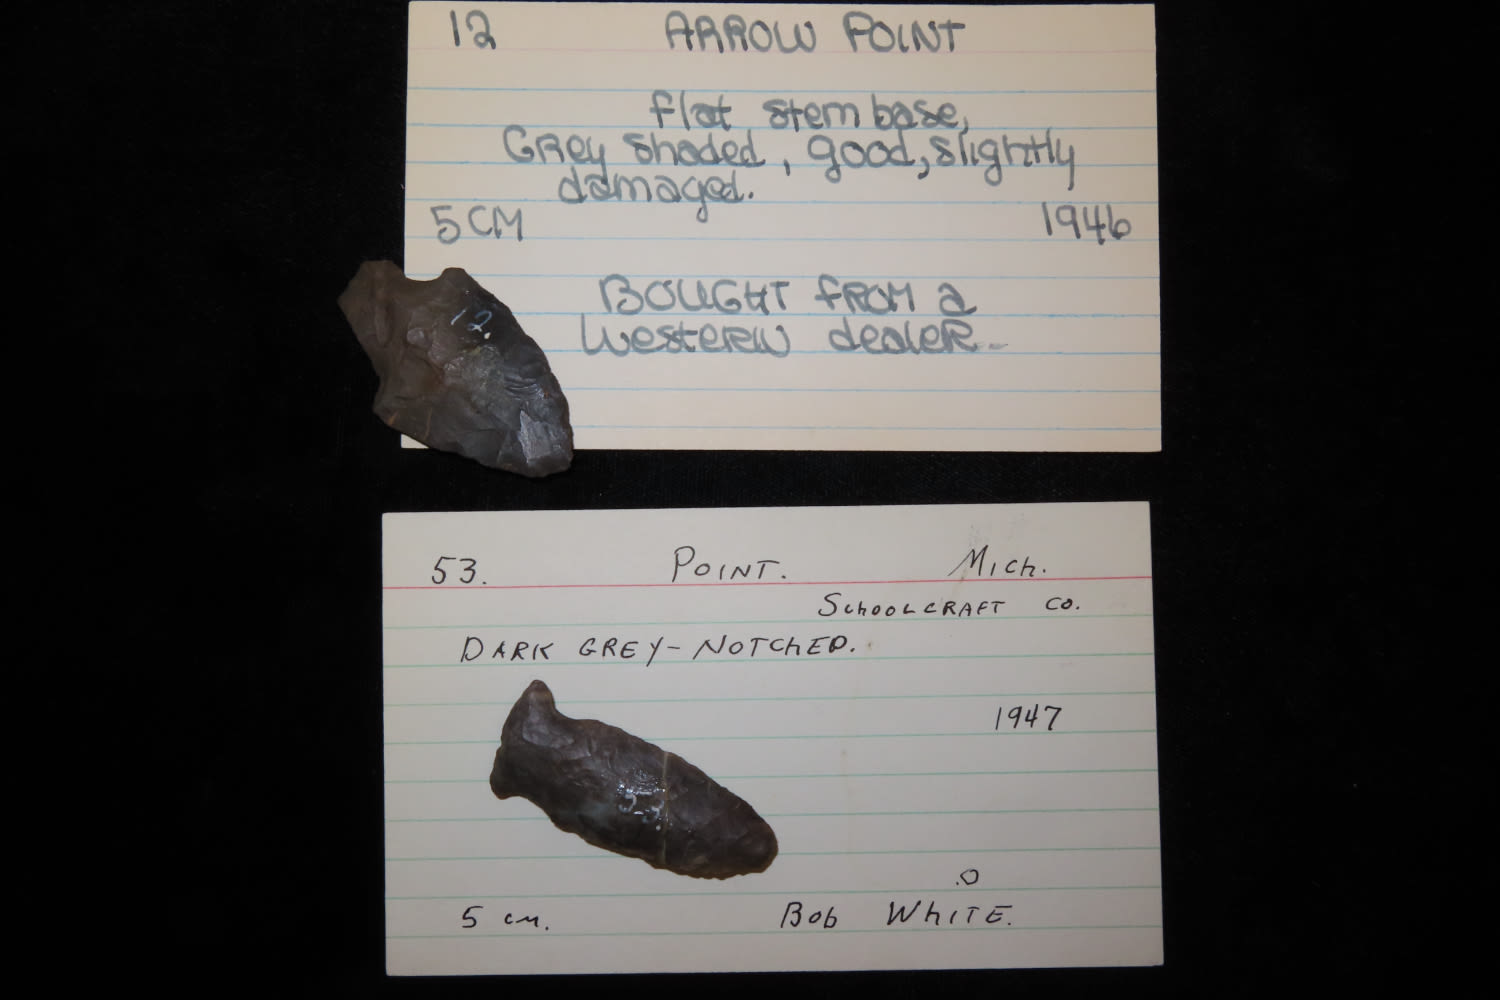 12 ARROW POINT
flat stem base,
Grey shaded, good, slightly
damaged.
5 CM 1946
12.
BOUGHT FROM a
Western dealer.
53. POINT. Mich.
Schoolcraft Co.
DARK GREY-NOTCHED.
1947
5 cm. Bob White.